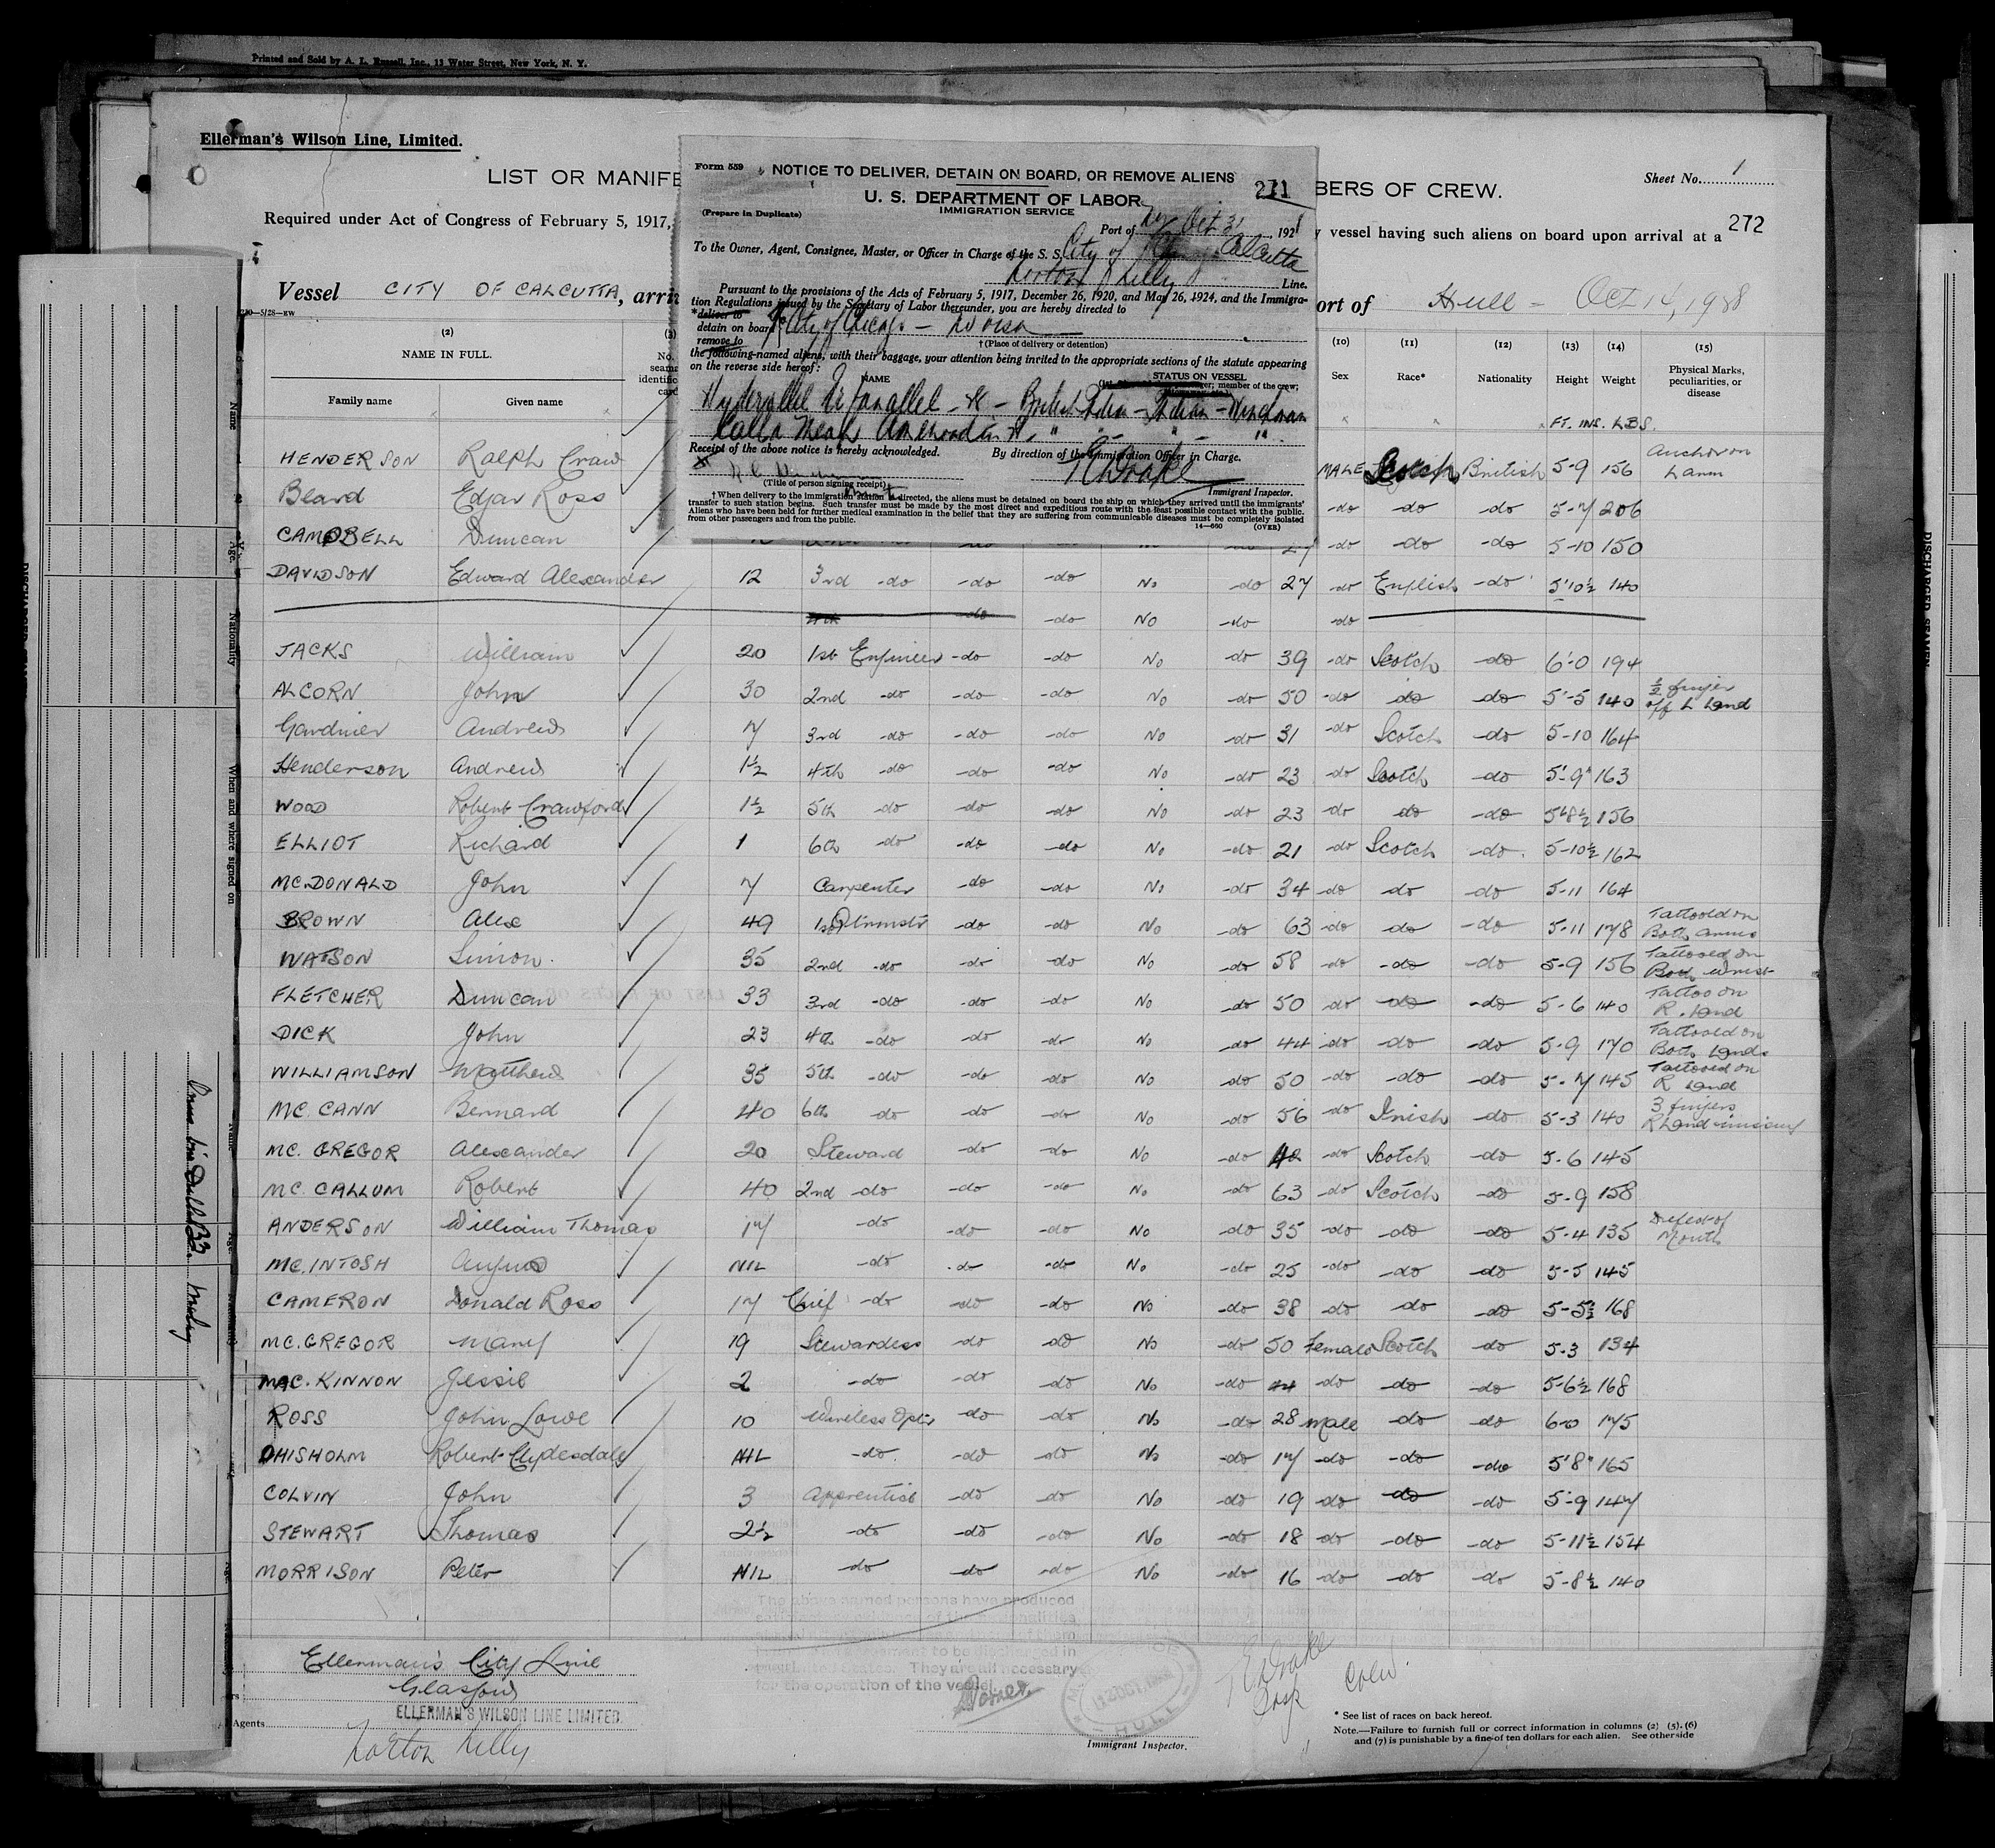 Printed and Sold by A. L. Russell, Inc., 13 Water Street, New York, N. Y.
Ellerman's Wilson Line, Limited.
LIST OR MANIFE
BERS OF CREW.
Sheet No. 1
Required under Act of Congress of February 5, 1917,
y vessel having such aliens on board upon arrival at a
272
Vessel CITY OF CALCUTTA, arri
ort of Hull - Oct 14, 1928
Form 559
NOTICE TO DELIVER, DETAIN ON BOARD, OR REMOVE ALIENS
271
U. S. DEPARTMENT OF LABOR
IMMIGRATION SERVICE
(Prepare in Duplicate)
Port of NY Oct 31, 192
To the Owner, Agent, Consignee, Master, or Officer in Charge of the S. S. City of Calcutta
Norton Lilly Line.
Pursuant to the provisions of the Acts of February 5, 1917, December 26, 1920, and May 26, 1924, and the Immigra-
tion Regulations issued by the Secretary of Labor thereunder, you are hereby directed to
*deliver to
detain on board City of
remove to
†(Place of delivery or detention)
the following-named aliens, with their baggage, your attention being invited to the appropriate sections of the statute appearing
on the reverse side hereof:
NAME STATUS ON VESSEL
member of the crew;
British Indian
Receipt of the above notice is hereby acknowledged. By direction of the Immigration Officer in Charge.
R Drake
(Title of person signing receipt) Immigrant Inspector.
† When delivery to the immigration station is directed, the aliens must be detained on board the ship on which they arrived until the immigrants'
transfer to such station begins. Such transfer must be made by the most direct and expeditious route with the least possible contact with the public.
Aliens who have been held for further medical examination in the belief that they are suffering from communicable diseases must be completely isolated
from other passengers and from the public.
14—660 (OVER)
(2) (10) (11) (12) (13) (14) (15)
NAME IN FULL.
Family name Given name Sex Race* Nationality Height Weight Physical Marks, peculiarities, or disease
FT. INS. LBS.
HENDERSON Ralph Craw MALE Scotch British 5-9 156 Anchor on L arm
Beard Edgar Ross -do -do -do 5-7 206
CAMPBELL Duncan -do -do -do 5-10 150
DAVIDSON Edward Alexander 12 3rd -do -do -do No -do 27 -do English -do 5'10½ 140
4th -do -do No -do -do
JACKS William 20 1st Engineer -do -do No do 39 -do Scotch -do 6'-0 194
ALCORN John 30 2nd -do -do -do No -do 50 -do do -do 5'-5 140 ½ finger off L Hand
Gardner Andrew 7 3rd -do -do -do No -do 31 -do Scotch -do 5-10 164
Henderson Andrew 1½ 4th -do -do -do No -do 23 -do Scotch -do 5'-9" 163
WOOD Robert Crawford 1½ 5th -do -do -do No -do 23 -do do -do 5'8½ 156
ELLIOT Richard 1 6th -do -do -do No -do 21 -do Scotch -do 5-10½ 162
MC.DONALD John 7 Carpenter -do -do No -do 34 -do do -do 5-11 164
BROWN Alex 49 1st Qtrmstr -do -do No -do 63 -do do -do 5-11 178 Tattooed on Both arms
WATSON Simon 35 2nd -do -do -do No -do 58 -do -do -do 5-9 156 Tattooed on Both Wrist
FLETCHER Duncan 33 3rd -do -do -do No do 50 -do -do -do 5-6 140 Tattoo on R. Hand
DICK John 23 4th -do -do -do No -do 44 -do -do -do 5-9 170 Tattooed on Both Hands
WILLIAMSON Matthew 35 5th -do -do -do No -do 50 -do -do -do 5-7 145 Tattooed on R Hand
MC. CANN Bernard 40 6th do -do -do No -do 56 -do Irish -do 5-3 140 3 fingers R Hand missing
MC. GREGOR Alexander 20 Steward -do -do No -do -do Scotch -do 5-6 145
MC. CALLUM Robert 40 2nd -do -do -do No -do 63 -do Scotch -do 5-9 158
ANDERSON William Thomas 17 -do -do -do No -do 35 -do -do -do 5-4 135 Defect of Mouth
MC.INTOSH Angus NIL -do -do -do No -do 25 -do -do -do 5-5 145
CAMERON Donald Ross 17 Chief -do -do -do No -do 38 -do do -do 5-5½ 168
MC.GREGOR Mary 19 Stewardess -do do No -do 50 Female Scotch -do 5-3 134
MAC.KINNON Jessie 2 -do -do -do No -do 44 -do -do -do 5-6½ 168
ROSS John Lowe 10 Wireless Optr -do do No -do 28 male -do do 6-0 175
CHISHOLM Robert Clydesdale NIL -do -do -do No -do 17 -do -do -do 5'8" 165
COLVIN John 3 Apprentice -do -do No -do 19 -do do -do 5-9 147
STEWART Thomas 2½ -do -do -do No -do 18 -do -do -do 5-11½ 154
MORRISON Peter NIL -do -do -do No -do 16 -do -do -do 5-8½ 140
The above named persons have produced
They are all necessary
for the operation of the vessel
Ellerman's City Line
Glasgow
ELLERMAN'S WILSON LINE LIMITED.
Agents
Norton Lilly
Immigrant Inspector.
* See list of races on back hereof.
Note.—Failure to furnish full or correct information in columns (2) (5), (6)
and (7) is punishable by a fine of ten dollars for each alien. See other side
Name
Age.
Nationality
When and where signed on